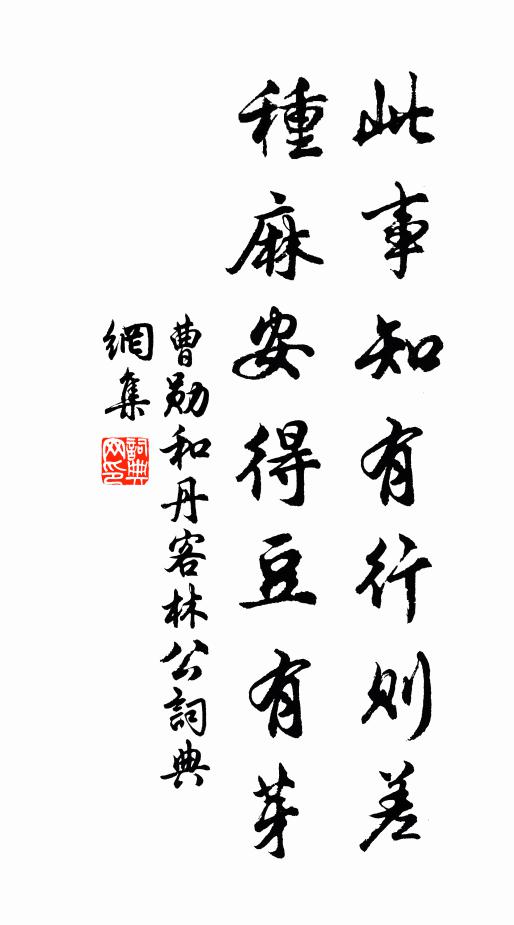 此事知有行則差
種麻安得豆有芽
曹勛和丹客林公詞典
網集
詞典
网印